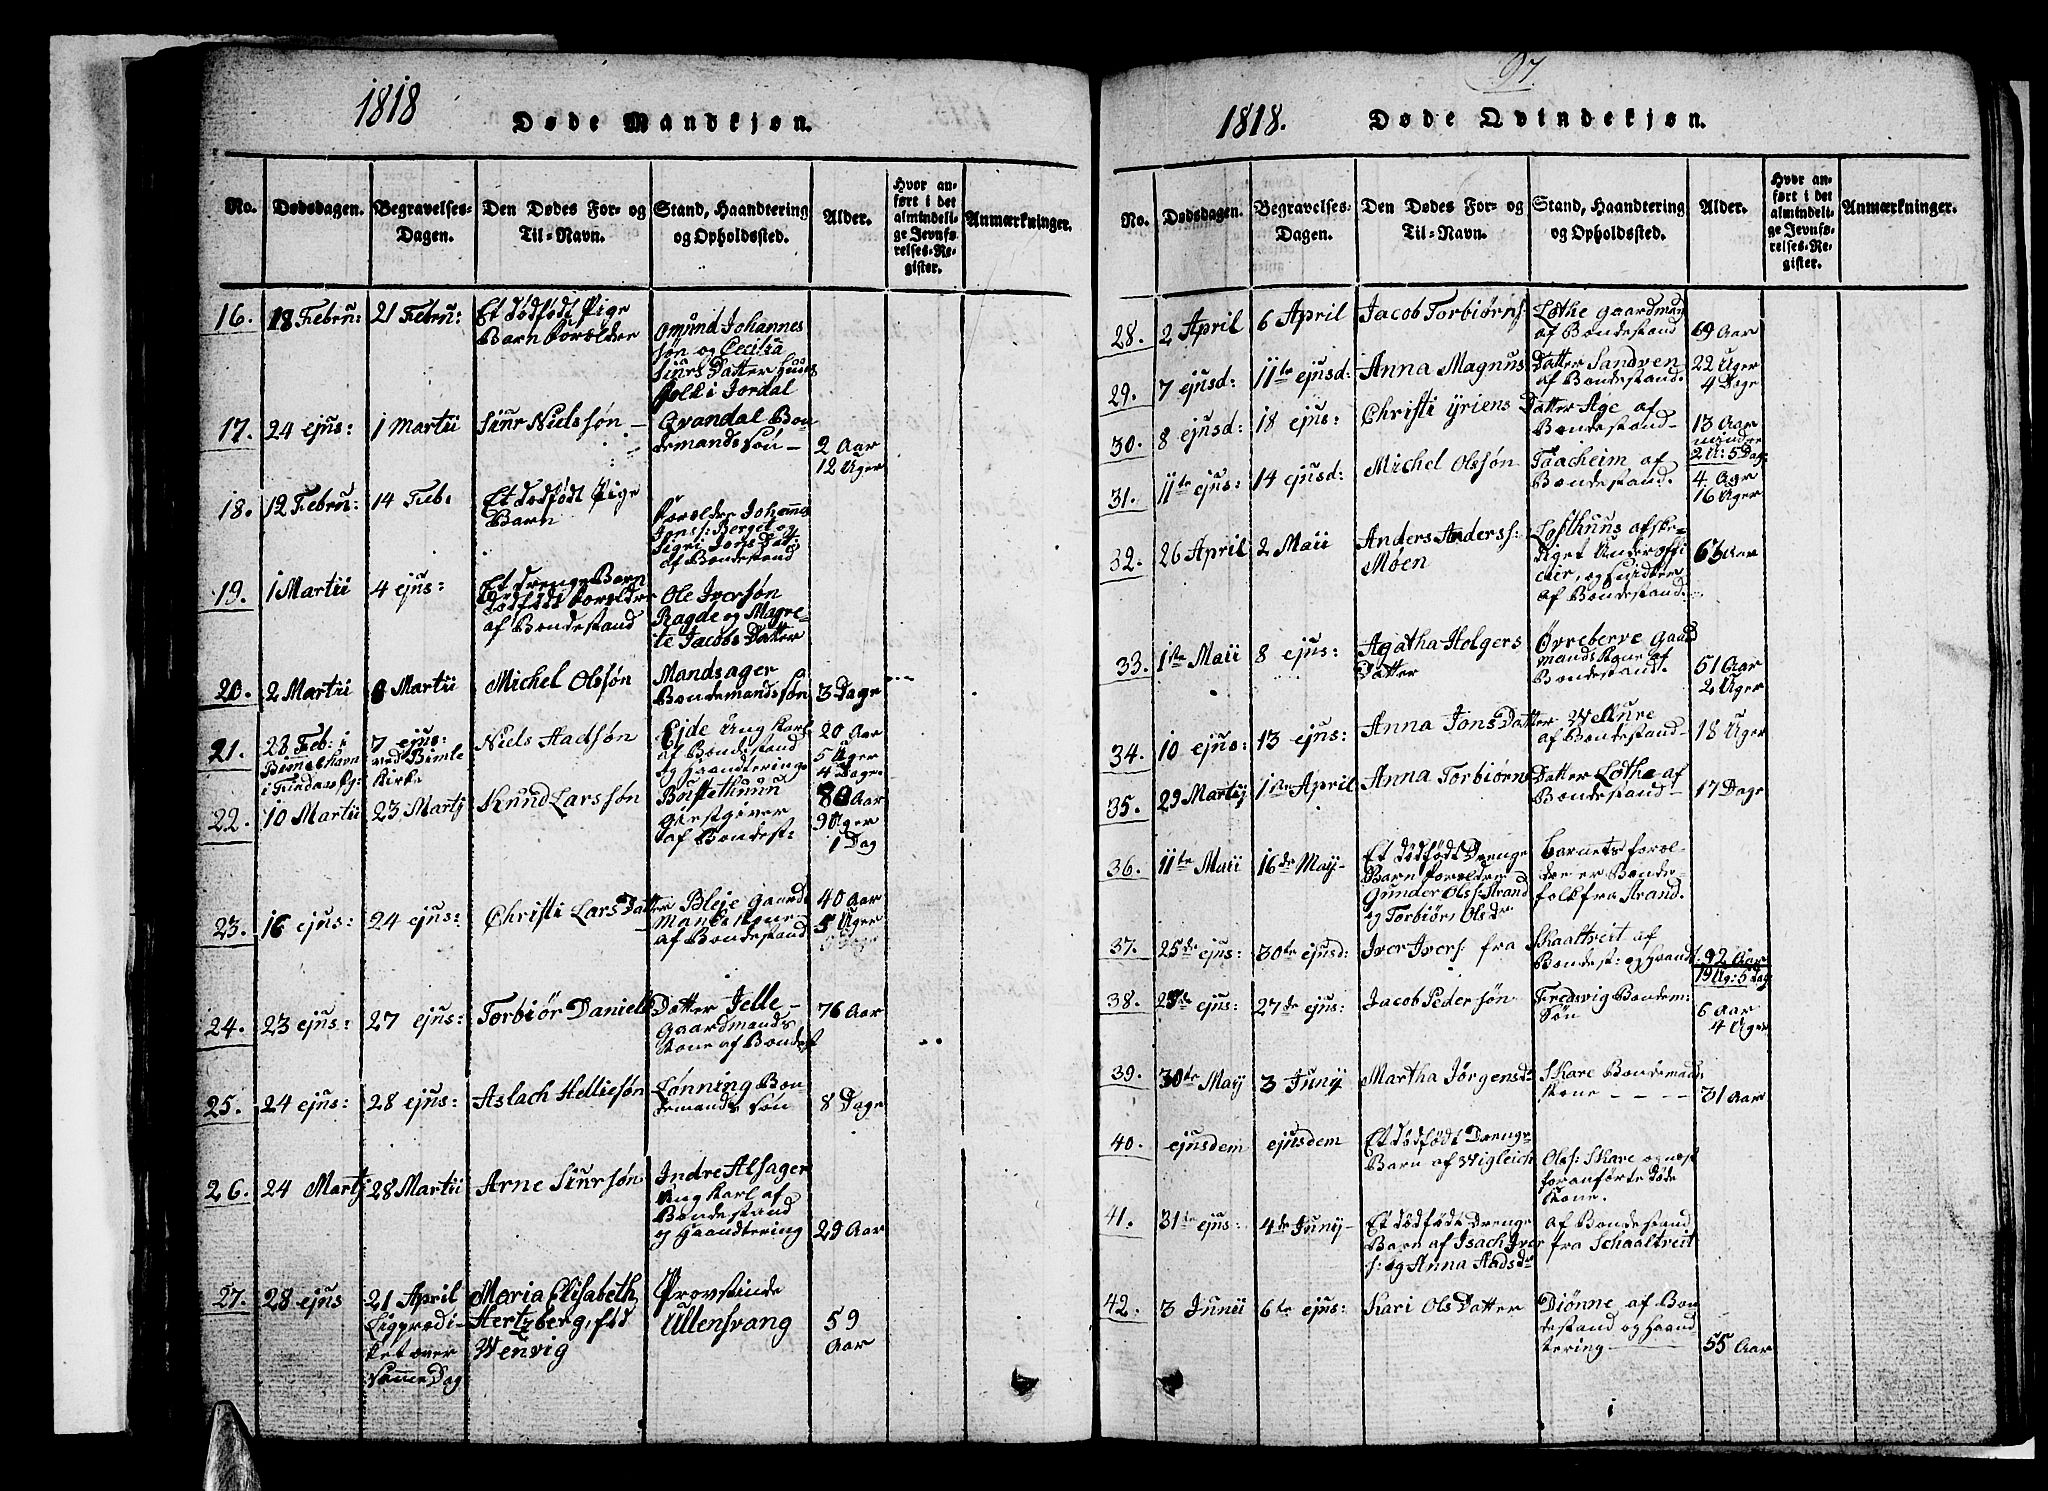 1818
Døde Mandkjøn.
No.
Dødsdagen.
Begravelses-
Dagen.
Den Dødes For- og
Til-Navn.
Stand, Haandtering
og Opholdssted.
Alder.
Hvor an-
ført i det
almindeli-
ge Jevnfø-
relses-Re-
gister.
Anmærkninger.
16.
18 Febru:
21 Febru:
Et dødfødt Pige
Barn Foreldre
Omund Johannes
søn og Cecilia
Siurs Datter Huus
folk i Jordal
17.
24 ejus:
1 Martii
Siur Nielssøn
Qvandal Bon
demands søn
2 Aar
12 Uger
18.
12 Febru:
14 Feb:
Et dødfødt Pige
Barn
Foreldre Johannes
Jons: Berget og
Sigri Jons Dat:
af Bondestand
19.
1 Martii
4 ejus:
Et Drenge Barn
dødfødt Foreldre
af Bondestand
Ole Iversøn
Ragde og Magre-
te Jacobs Datter
20.
2 Martii
8 Martii
Michel Olssøn
Mandsager
Bondemandssøn
3 Dage
21.
28 Feb: i
7 ejus:
ved Bimle
Kirke
Niels Aadsøn
Ejde Ung Karl
af Bondestand
og Haandtering
20 Aar
5 Uger
4 Dage
22.
10 Martii
23 Martij
Knud Larssøn
giestgiver
af Bondest:
80 Aar
9 Uger
1 Dag
23.
16 ejus:
24 ejus:
Christi Lars Datter
Bleje Gaard
Mands Kone
af Bondestand
40 Aar
5 Uger
24.
23 ejus:
27 ejus:
Torbiør Daniels
Datter Jelle
Gaardmands
Kone af Bondest
76 Aar
25.
24 ejus:
28 ejus:
Aslach Helliesøn
Lønning Bon-
demands søn
8 Dage
26.
24 Martij
28 Martii
Arne Siursøn
Indre Alsager
Ung Karl af
Bondestand
og Haandtering
29 Aar
27.
28 ejus
21 April
Ligprædi-
ket over
samme Dag
Maria Elisabeth
Hertzberg, fød
Wenvig
Provstinde
Ullensvang
59
Aar
97.
1818.
Døde Qvindekjøn.
No.
Dødsdagen.
Begravelses-
Dagen.
Den Dødes For- og
Til-Navn.
Stand, Haandtering
og Opholdssted.
Alder.
Hvor an-
ført i det
almindeli-
ge Jevnfø-
relses-Re-
gister.
Anmærkninger.
28.
2 April
6 April
Jacob Torbiørns:
Lothe Gaardmand
af Bondestand
69 Aar
29.
7 ejusd:
11te ejusd:
Anna Magnus
Datter Sandven
af Bondestand.
22 Uger
4 Dage
30.
8 ejusd:
18 ejus:
Christi Yriens
Datter Age af
Bondestand
13 Aar
mindre
2 U: 5 Dag:
31.
11te ejus:
14 ejusd:
Michel Olssøn
Taacheim af
Bondestand.
4. Aar
16 Uger
32.
26 April
2 Maii
Anders Anderss:
Moen
Lofthuus afske-
diget Underoffi
cier, og Huidtør
af Bondestand.
67 Aar
33.
1ste Maii
8 ejus:
Agatha Holgers
Datter
Øvreberve Gaard
mands Kone af
Bondestand.
51 Aar
2 Uger
34.
10 ejus:
13 ejus:
Anna Jons Datter
Wellure
af Bondestand
18 Uger
35.
29 Martij
1ste April
Anna Torbiørns
Datter Lothe af
Bondestand
17 Dage
36.
11te Maii
16de Maij
Et dødfødt Drenge
Barn Foreldre
Gunder Olss: Strand
og Torbiør Olsdr
Barnets forel-
dre er Bonde-
folk fra Strand.
37.
25de ejus:
30te ejusd:
Iver Ivers: fra
Skaaltveit af
Bondest: og Haandt:
92 Aar
19 Ug: 5 Dag:
38.
ejus:
27de ejus:
Jacob Pedersøn
Fredsvig Bondem:
Søn
6 Aar
4 Uger
39.
30te Maij
3 Junij
Martha Jørgensdr
Skare Bondemands
Kone
31 Aar
40.
ejusdem
ejusdem
Et dødfødt Drenge
Barn af Wigleich
Olss: Skare og næst
foranførte døde
Kone.
41.
31te ejus:
4de Junij
Et dødfødt Drenge
Barn af Isach Iver
s: og Anna Aadsdr
af Bondestand
fra Schaaltveit
42.
3 Junii
6te ejus:
Kari Ols Datter
Diønne af Bon
destand og Haand
tering
55 Aar